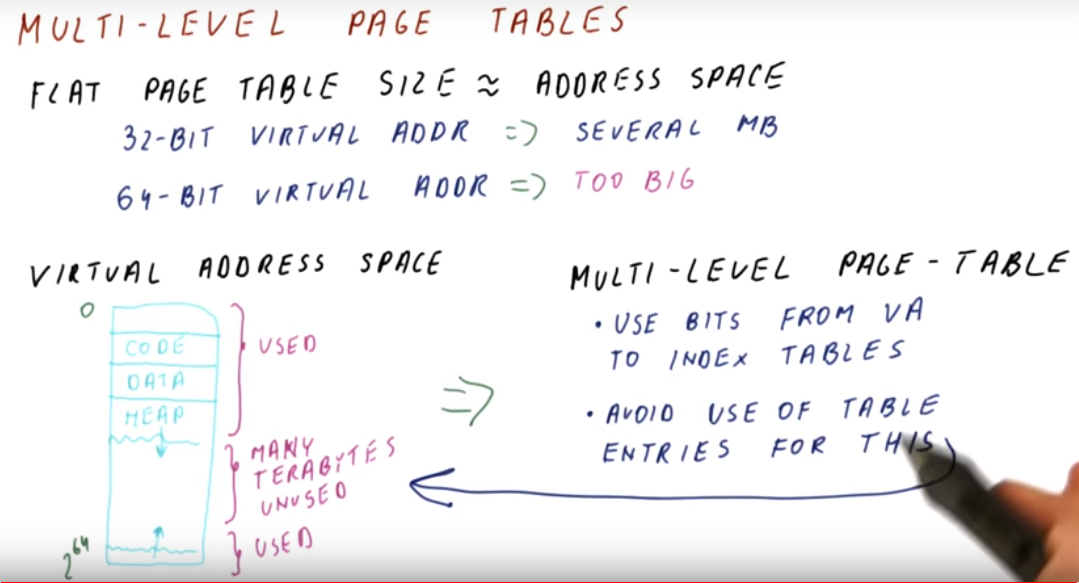 MULTI-LEVEL PAGE TABLES
FLAT PAGE TABLE SIZE ≈ ADDRESS SPACE
32-BIT VIRTUAL ADDR => SEVERAL MB
64-BIT VIRTUAL ADDR => TOO BIG
VIRTUAL ADDRESS SPACE
0
CODE
DATA
HEAP
USED
MANY
TERABYTES
UNUSED
USED
2^64
=>
MULTI-LEVEL PAGE-TABLE
• USE BITS FROM VA
TO INDEX TABLES
• AVOID USE OF TABLE
ENTRIES FOR THIS